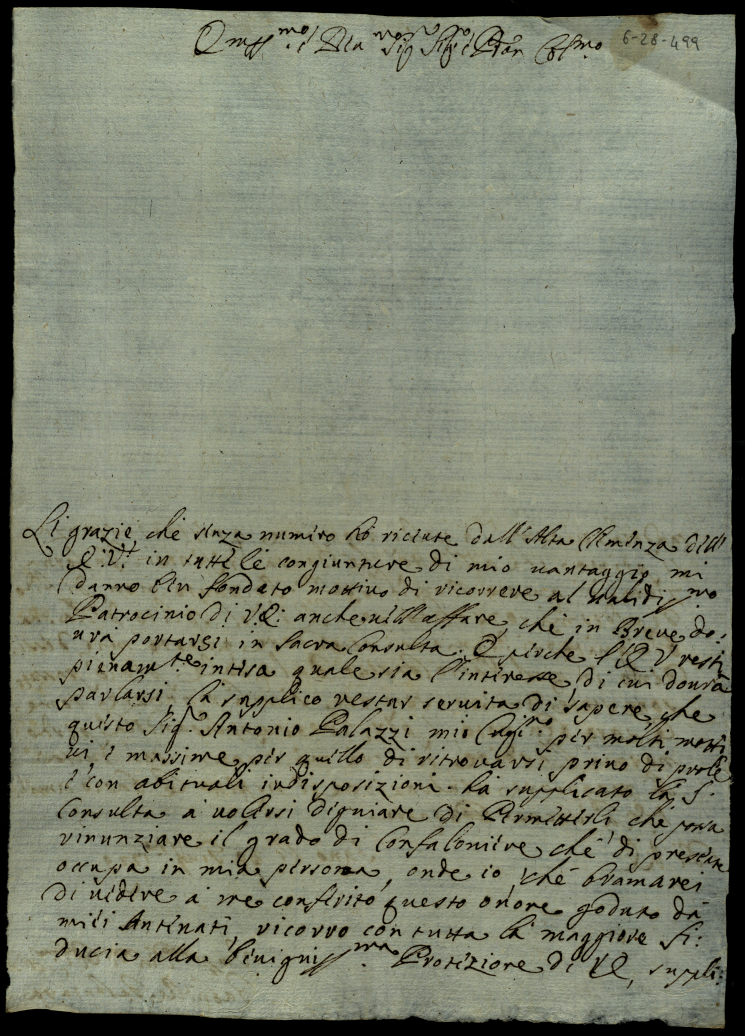 Em.mo e R.mo Sig. Sig. e Pron Col.mo
6-28-499
Le grazie, che senza numero hò riceute dall'Alta Clemenza dell'
E. V. in tutte le congiunture di mio vantaggio, mi
danno ben fondato mottivo di ricorrere al validiss.mo
Patrocinio di V.E: anche nell'affare, che in Breve do:
urà portarsi in Sacra Consulta. E perche l'E V resti
pienam.te intesa quale sia l'interesse, di cui dourà
parlarsi, la supplico restar seruita di sapere, che
questo Sig. Antonio Palazzi mio Cug.no per molti motti
ui, e massime per quello di ritrovarsi privo di prole
e con abituali indisposizioni. hà supplicato la S.
Consulta à volersi digniare di Permetterli, che possa
rinunziare il grado di Confaloniere che di presente
occupa in mia persona, onde io, che bramarei
di uedere à me conferito questo onore goduto dà
miei Antenati, ricorro con tutta la maggiore fi:
ducia alla benigniss.ma Protezione di VE, suppli: